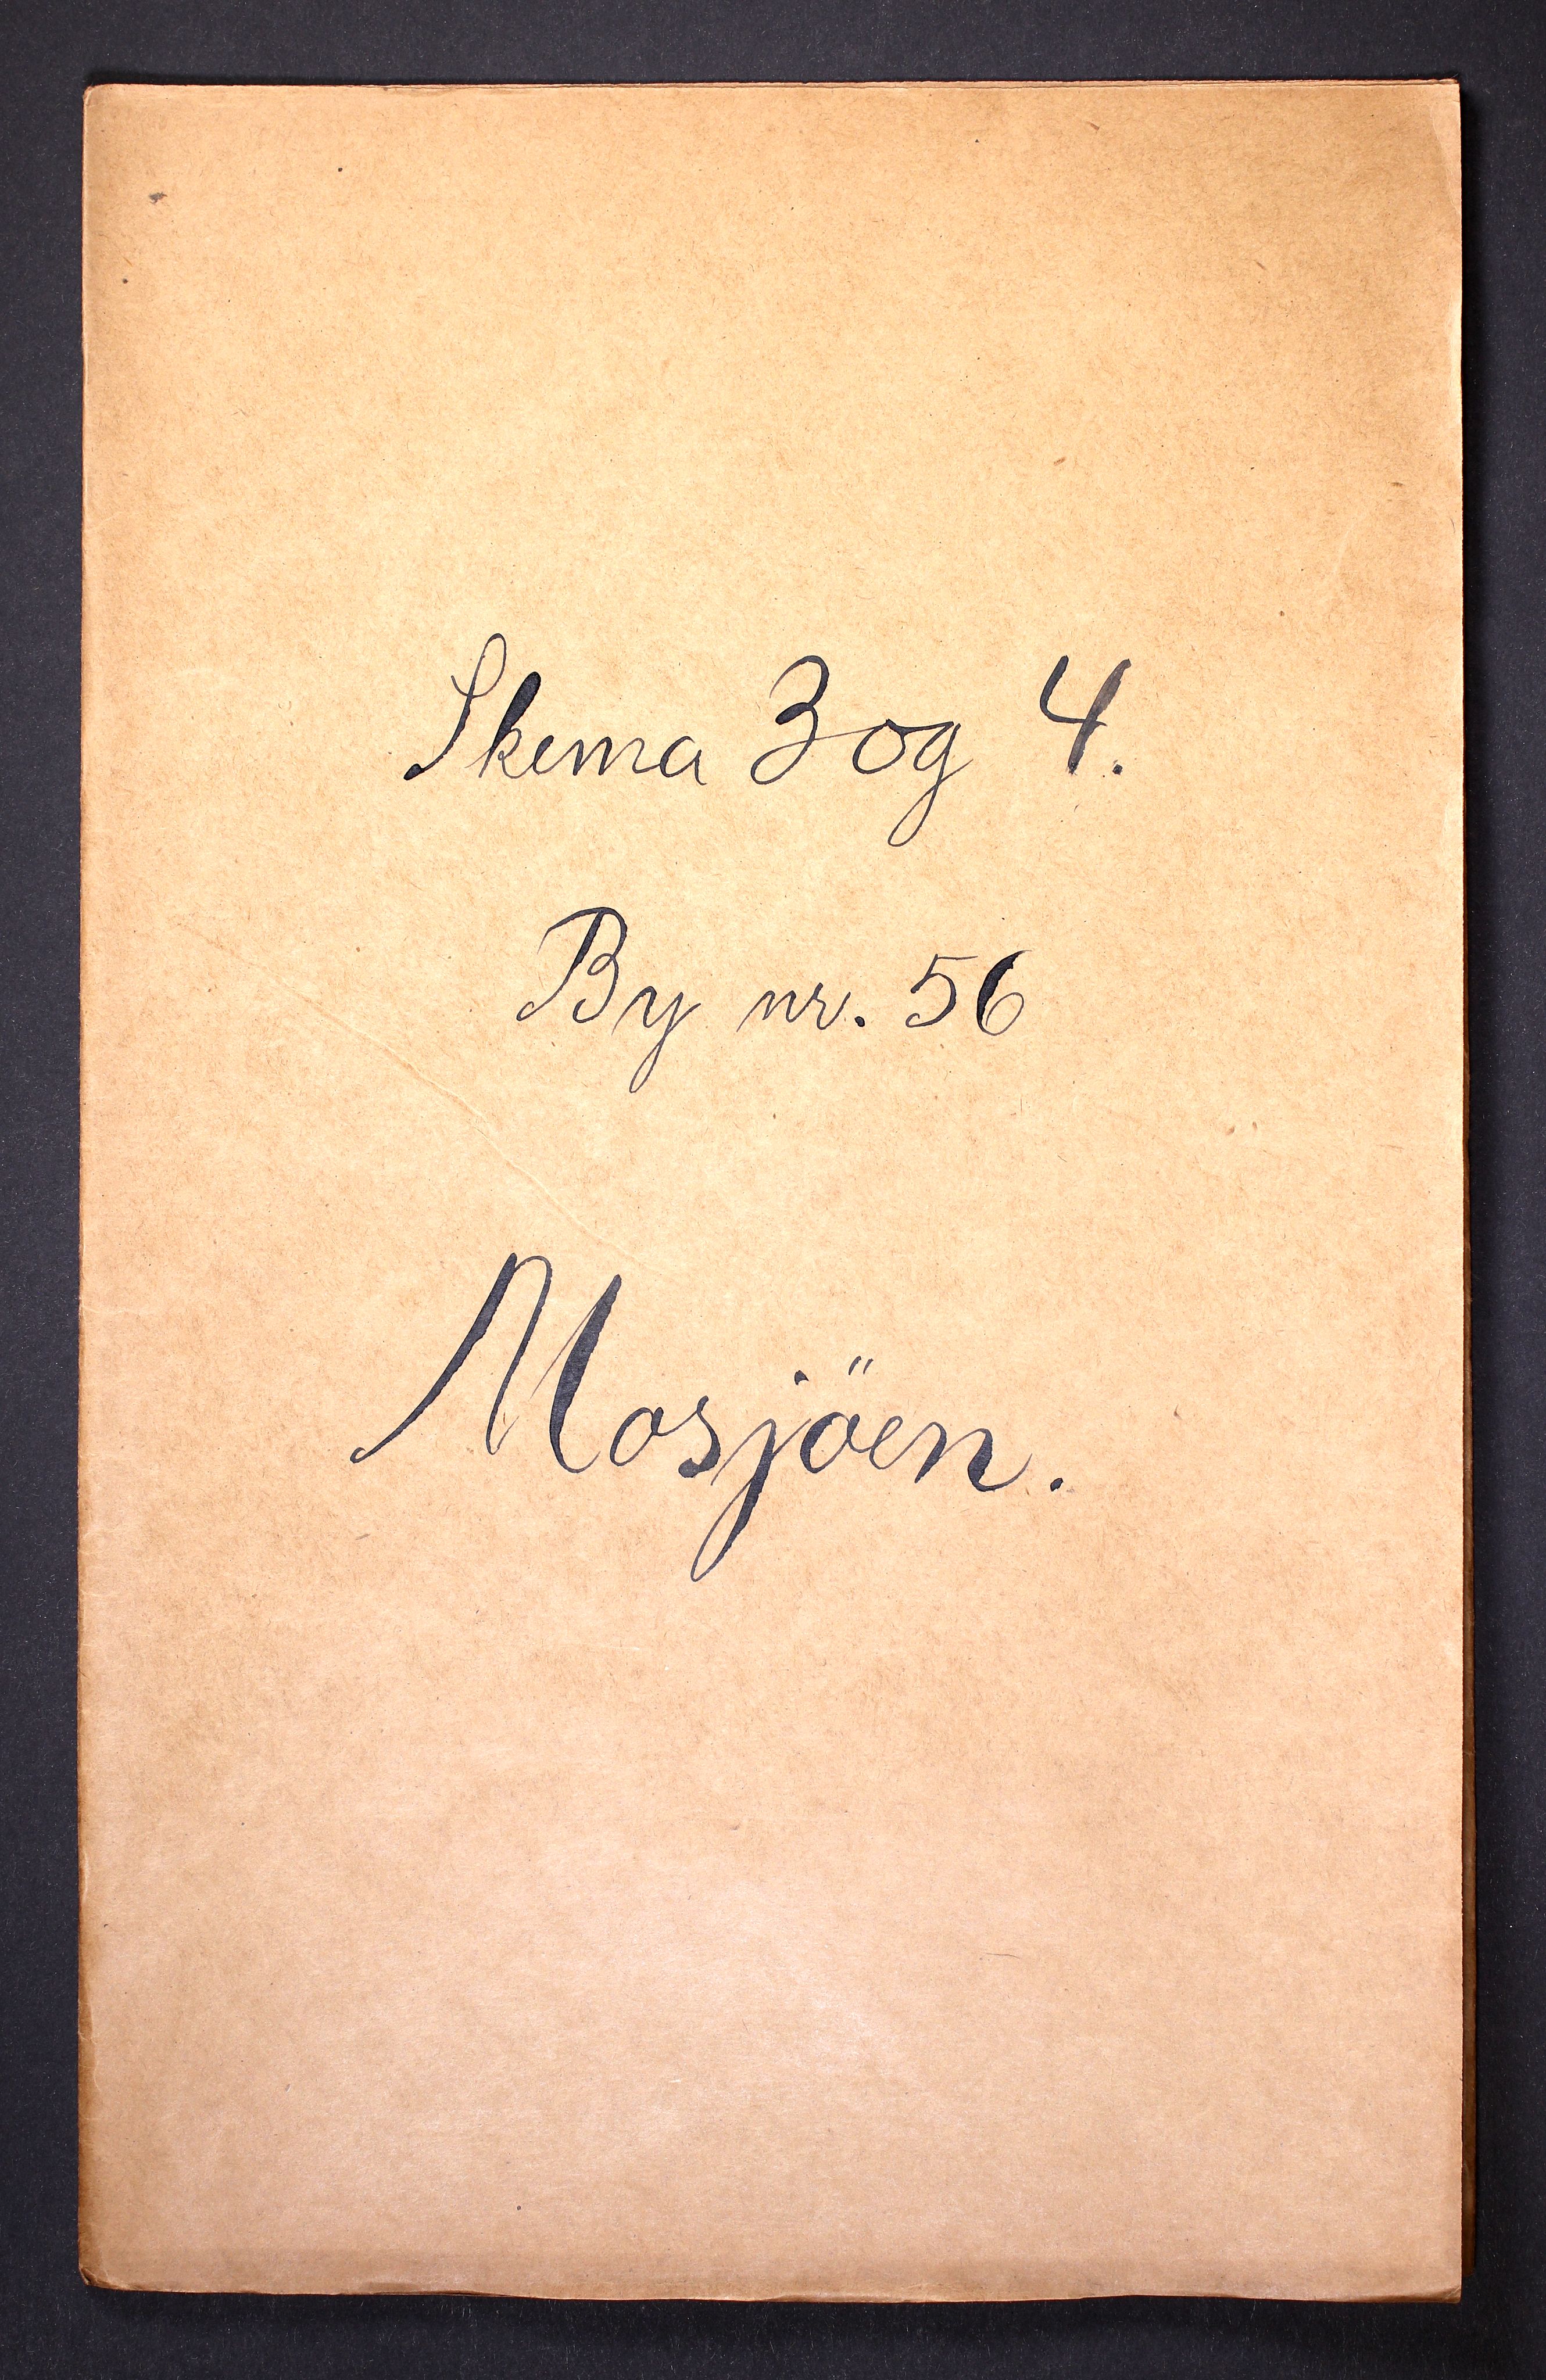 Skema 3 og 4.
By nr. 56
Mosjöen.